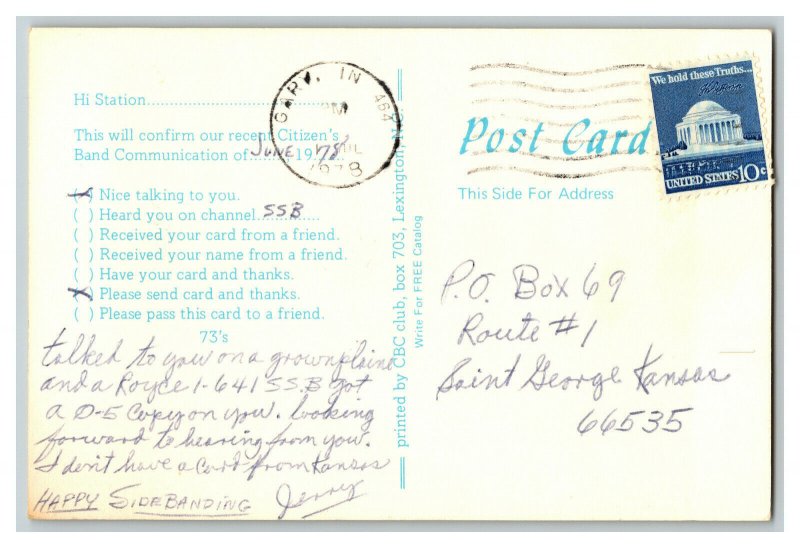 Hi Station
This will confirm our recent Citizen's
Band Communication of June 1978
(X) Nice talking to you.
( ) Heard you on channel SSB
( ) Received your card from a friend.
( ) Received your name from a friend.
( ) Have your card and thanks.
(X) Please send card and thanks.
( ) Please pass this card to a friend.
73's
talked to you on a grownplaine
and a Royce 1-641 SSB got
a O-5 Copy on you. looking
forward to hearing from you.
I don't have a Card from Kansas
HAPPY SIDEBANDING Jerry
printed by CBC club, box 703, Lexington, N.C.
Write For FREE Catalog
GARY, IN 464
PM
JUL
1978
We hold these Truths...
UNITED STATES 10c
Post Card
This Side For Address
P.O. Box 69
Route #1
Saint George Kansas
66535